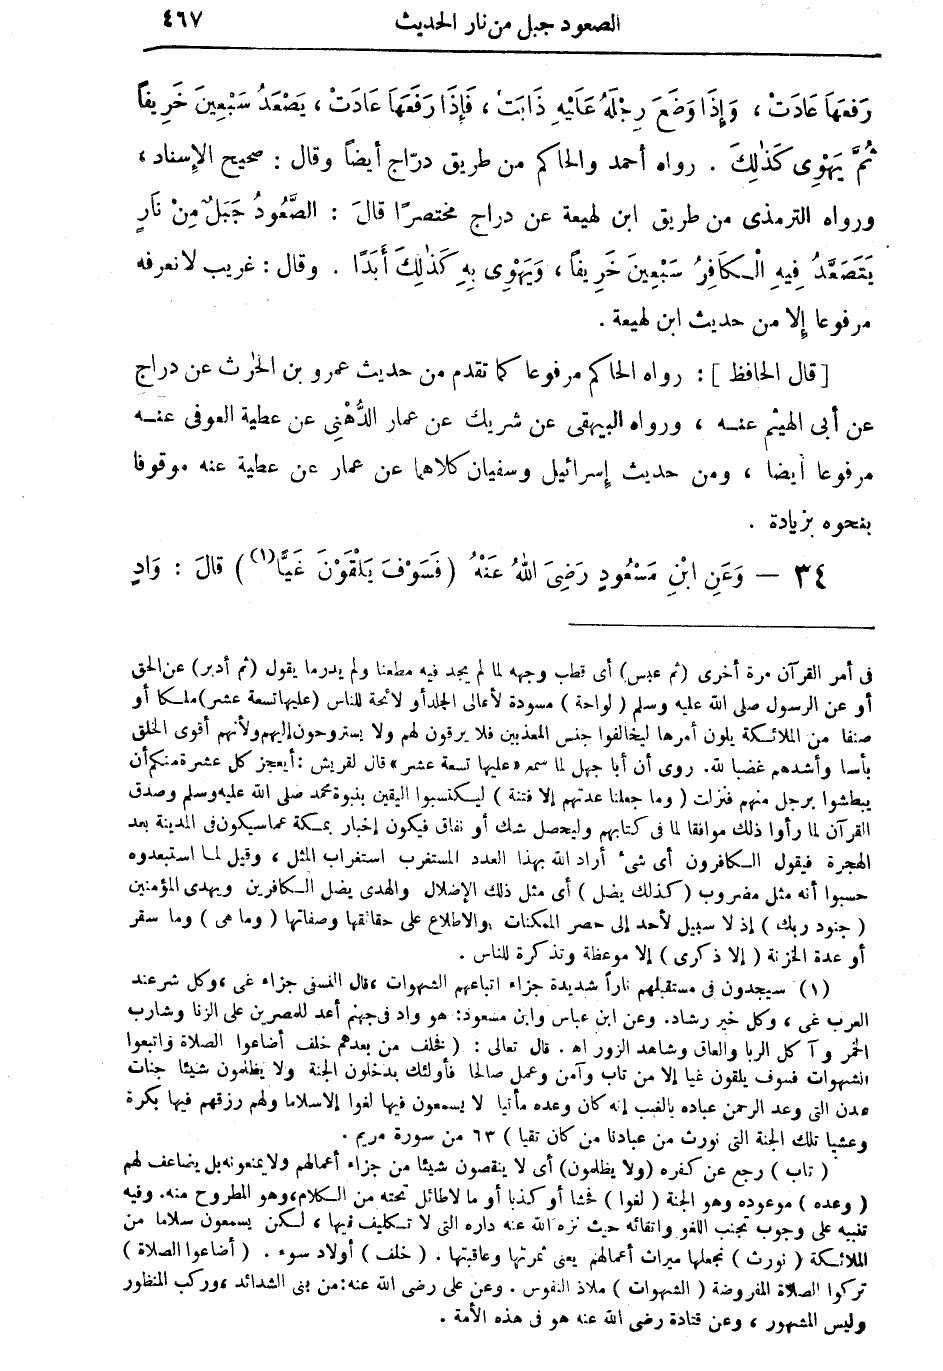 الصعود جبل من نار الحديث ٤٦٧
رَفَعَهَا عَادَتْ ، وَإِذَا وَضَعَ رِجْلَهُ عَلَيْهِ ذَابَتْ ، فَإِذَا رَفَعَهَا عَادَتْ ، يَصْعَدُ سَبْعِينَ خَرِيفاً
ثُمَّ يَهْوِى كَذٰلِكَ . رواه أحمد والحاكم من طريق درّاج أيضاً وقال : صحيح الإسناد ،
ورواه الترمذى من طريق ابن لهيعة عن دراج مختصرًا قالَ : الصَّعُودُ جَبَلٌ مِنْ نَارٍ
يَتَصَعَّدُ فِيهِ الْكَافِرُ سَبْعِينَ خَرِيفاً ، وَيَهْوِى بِهِ كَذٰلِكَ أَبَدًا . وقال : غريب لانعرفه
مرفوعا إلا من حديث ابن لهيعة .
[قال الحافظ] : رواه الحاكم مرفوعا كما تقدم من حديث عمرو بن الحٰرث عن دراج
عن أبى الهيثم عنه ، ورواه البيهقى عن شريك عن عمار الدُّهْنِى عن عطية العوفى عنه
مرفوعا أيضا ، ومن حديث إسرائيل وسفيان كلاهما عن عمار عن عطية عنه موقوفا
بنحوه بزيادة .
٣٤ — وَعَنِ ابْنِ مَسْعُودٍ رَضِىَ اللهُ عَنْهُ (فَسَوْفَ يَلْقَوْنَ غَيًّا(١)) قالَ : وَادٍ
فى أمر القرآن مرة أخرى (ثم عبس) أى قطب وجهه لما لم يجد فيه مطعنا ولم يدرما يقول (ثم أدبر) عن الحق
أو عن الرسول صلى الله عليه وسلم (لواحة) مسودة لأعالى الجلد أو لائحة للناس (عليها تسعة عشر) ملكا أو
صنفا من الملائكة يلون أمرها ليخالفوا جنس المعذبين فلا يرقون لهم ولا يستروحون إليهم ولأنهم أقوى الخلق
بأسا وأشدهم غضبا لله. روى أن أبا جهل لما سمع «عليها تسعة عشر» قال لقريش : أيعجز كل عشرة منكم أن
يبطشوا برجل منهم فنزلت (وما جعلنا عدتهم إلا فتنة) ليكتسبوا اليقين بنبوة محمد صلى الله عليه وسلم وصدق
القرآن لما رأوا ذلك موافقا لما فى كتابهم وليحصل شك أو نفاق فيكون إخبار بمكة عما سيكون فى المدينة بعد
الهجرة فيقول الكافرون أى شىء أراد الله بهذا العدد المستغرب استغراب المثل ، وقيل لما استبعدوه
حسبوا أنه مثل مضروب (كذلك يضل) أى مثل ذلك الإضلال والهدى يضل الكافرين ويهدى المؤمنين
(جنود ربك) إذ لا سبيل لأحد إلى حصر الممكنات والاطلاع على حقائقها وصفاتها (وما هى) وما سقر
أو عدة الخزنة (إلا ذكرى) إلا موعظة وتذكرة للناس .
(١) سيجدون فى مستقبلهم ناراً شديدة جزاء اتباعهم الشهوات ، قال النسفى جزاء غى ، وكل شر عند
العرب غى ، وكل خير رشاد. وعن ابن عباس وابن مسعود: هو واد فى جهنم أعد للمصرين على الزنا وشارب
الخمر وآكل الربا والعاق وشاهد الزور اه . قال تعالى : (فخلف من بعدهم خلف أضاعوا الصلاة واتبعوا
الشهوات فسوف يلقون غيا إلا من تاب وآمن وعمل صالحا فأولئك يدخلون الجنة ولا يظلمون شيئا جنات
عدن التى وعد الرحمن عباده بالغيب إنه كان وعده مأتيا لا يسمعون فيها لغوا إلاسلاما ولهم رزقهم فيها بكرة
وعشيا تلك الجنة التى نورث من عبادنا من كان تقيا) ٦٣ من سورة مريم .
(تاب) رجع عن كفره (ولا يظلمون) أى لا ينقصون شيئا من جزاء أعمالهم ولا يمنعونه بل يضاعف لهم
(وعده) موعوده وهو الجنة (لغوا) فحشا أو كذبا أو ما لاطائل تحته من الكلام، وهو المطروح منه. وفيه
تنبيه على وجوب تجنب اللغو واتقائه حيث نزه الله عنه داره التى لا تكليف فيها ، لكن يسمعون سلاما من
الملائكة (نورث) نجعلها ميراث أعمالهم يعنى ثمرتها وعاقبتها . (خلف) أولاد سوء . (أضاعوا الصلاة)
تركوا الصلاة المفروضة (الشهوات) ملاذ النفوس . وعن على رضى الله عنه: من بنى الشدائد ، وركب المنظور
وليس المشهور ، وعن قتادة رضى الله عنه هو فى هذه الأمة .